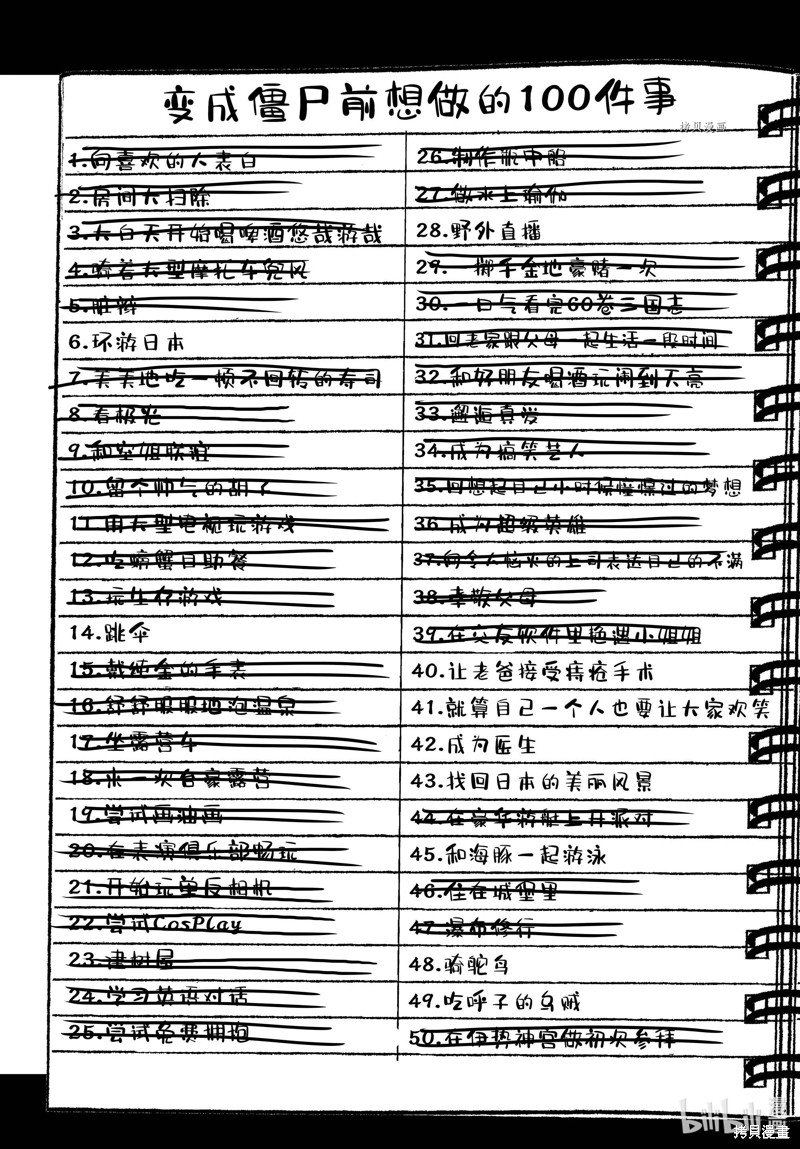 变成僵尸前想做的100件事
拷贝漫画
1.向喜欢的人表白
2.房间大扫除
3.大白天开始喝啤酒悠哉游哉
4.骑着大型摩托车兜风
5.脏辫
6.环游日本
7.美美地吃一顿不回转的寿司
8.看极光
9.和空姐联谊
10.留个帅气的胡子
11.用大型电视玩游戏
12.吃螃蟹自助餐
13.玩生存游戏
14.跳伞
15.戴纯金的手表
16.舒舒服服地泡温泉
17.坐露营车
18.来一次自豪露营
19.尝试画油画
20.在表演俱乐部畅玩
21.开始玩单反相机
22.尝试CosPlay
23.建树屋
24.学习英语对话
25.尝试免费拥抱
26.制作瓶中船
27.做水上瑜伽
28.野外直播
29.一掷千金地豪赌一次
30.一口气看完60卷三国志
31.回老家跟父母一起生活一段时间
32.和好朋友喝酒玩闹到天亮
33.邂逅真爱
34.成为搞笑艺人
35.回想起自己小时候憧憬过的梦想
36.成为超级英雄
37.向令人恼火的上司表达自己的不满
38.孝敬父母
39.在交友软件里艳遇小姐姐
40.让老爸接受痔疮手术
41.就算自己一个人也要让大家欢笑
42.成为医生
43.找回日本的美丽风景
44.在豪华游艇上开派对
45.和海豚一起游泳
46.住在城堡里
47.瀑布修行
48.骑鸵鸟
49.吃呼子的乌贼
50.在伊势神宫做初次参拜
bilibili
拷贝漫画